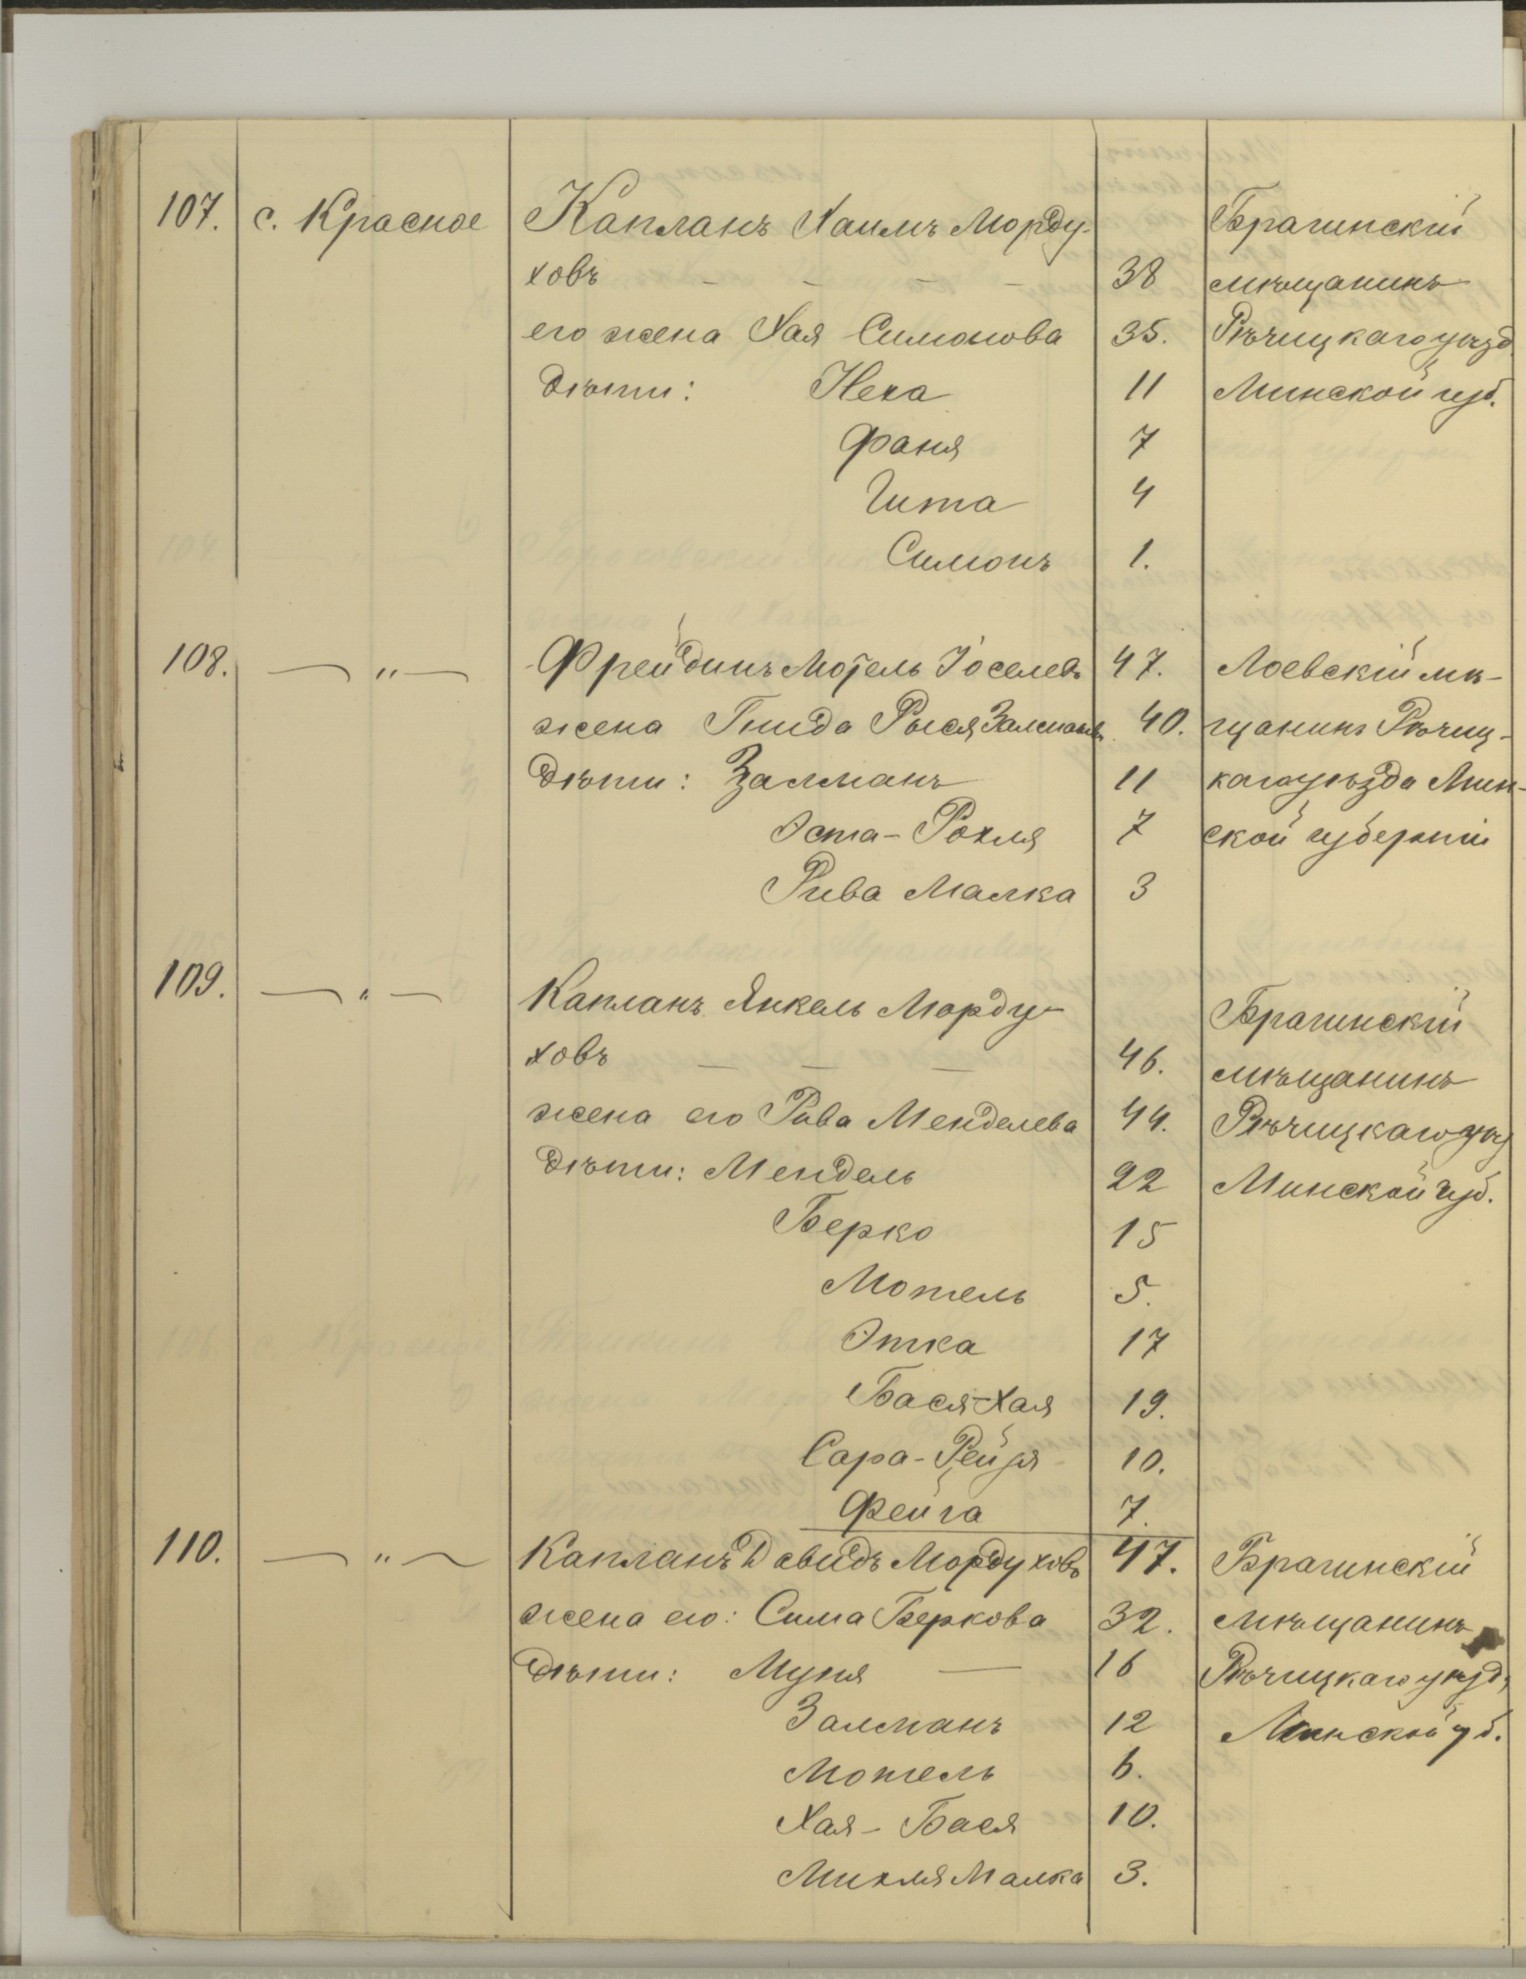 107. с. Красное Капланъ Хаимъ Морду- Брагинскій
ховъ - - - - 38 мѣщанинъ
его жена Хая Симонова 35. Рѣчицкаго уѣзд.
Дѣти: Неха 11 Минской губ.
Фаня 7
Гита 4
Симонъ 1.
108. — " — Фрейдинъ Мотель Іоселевъ 47. Лоевскій мѣ-
жена Гнида Рыся Залманъ 40. щанинъ Рѣчиц-
Дѣти: Залманъ 11 каго уѣзда Мин-
Эста-Рохля 7 ской губерніи
Рива Малка 3
109. — " — Капланъ Янкель Морду- Брагинскій
ховъ — — — 46. мѣщанинъ
жена его Рива Менделева 44. Рѣчицкаго
Дѣти: Мендель 22 Минской губ.
Берко 15
Мотель 5.
Этка 17
Бася-Хая 19.
Сара-Рейзя 10.
Фейга 7.
110. — " — Капланъ Давидъ Мордуховъ 47. Брагинскій
жена его: Сима Беркова 32. мѣщанинъ
Дѣти: Муня — 16 Рѣчицкаго уѣзд.
Залманъ 12 Минской губ.
Мотель 6.
Хая-Бася 10.
Михля Малка 3.